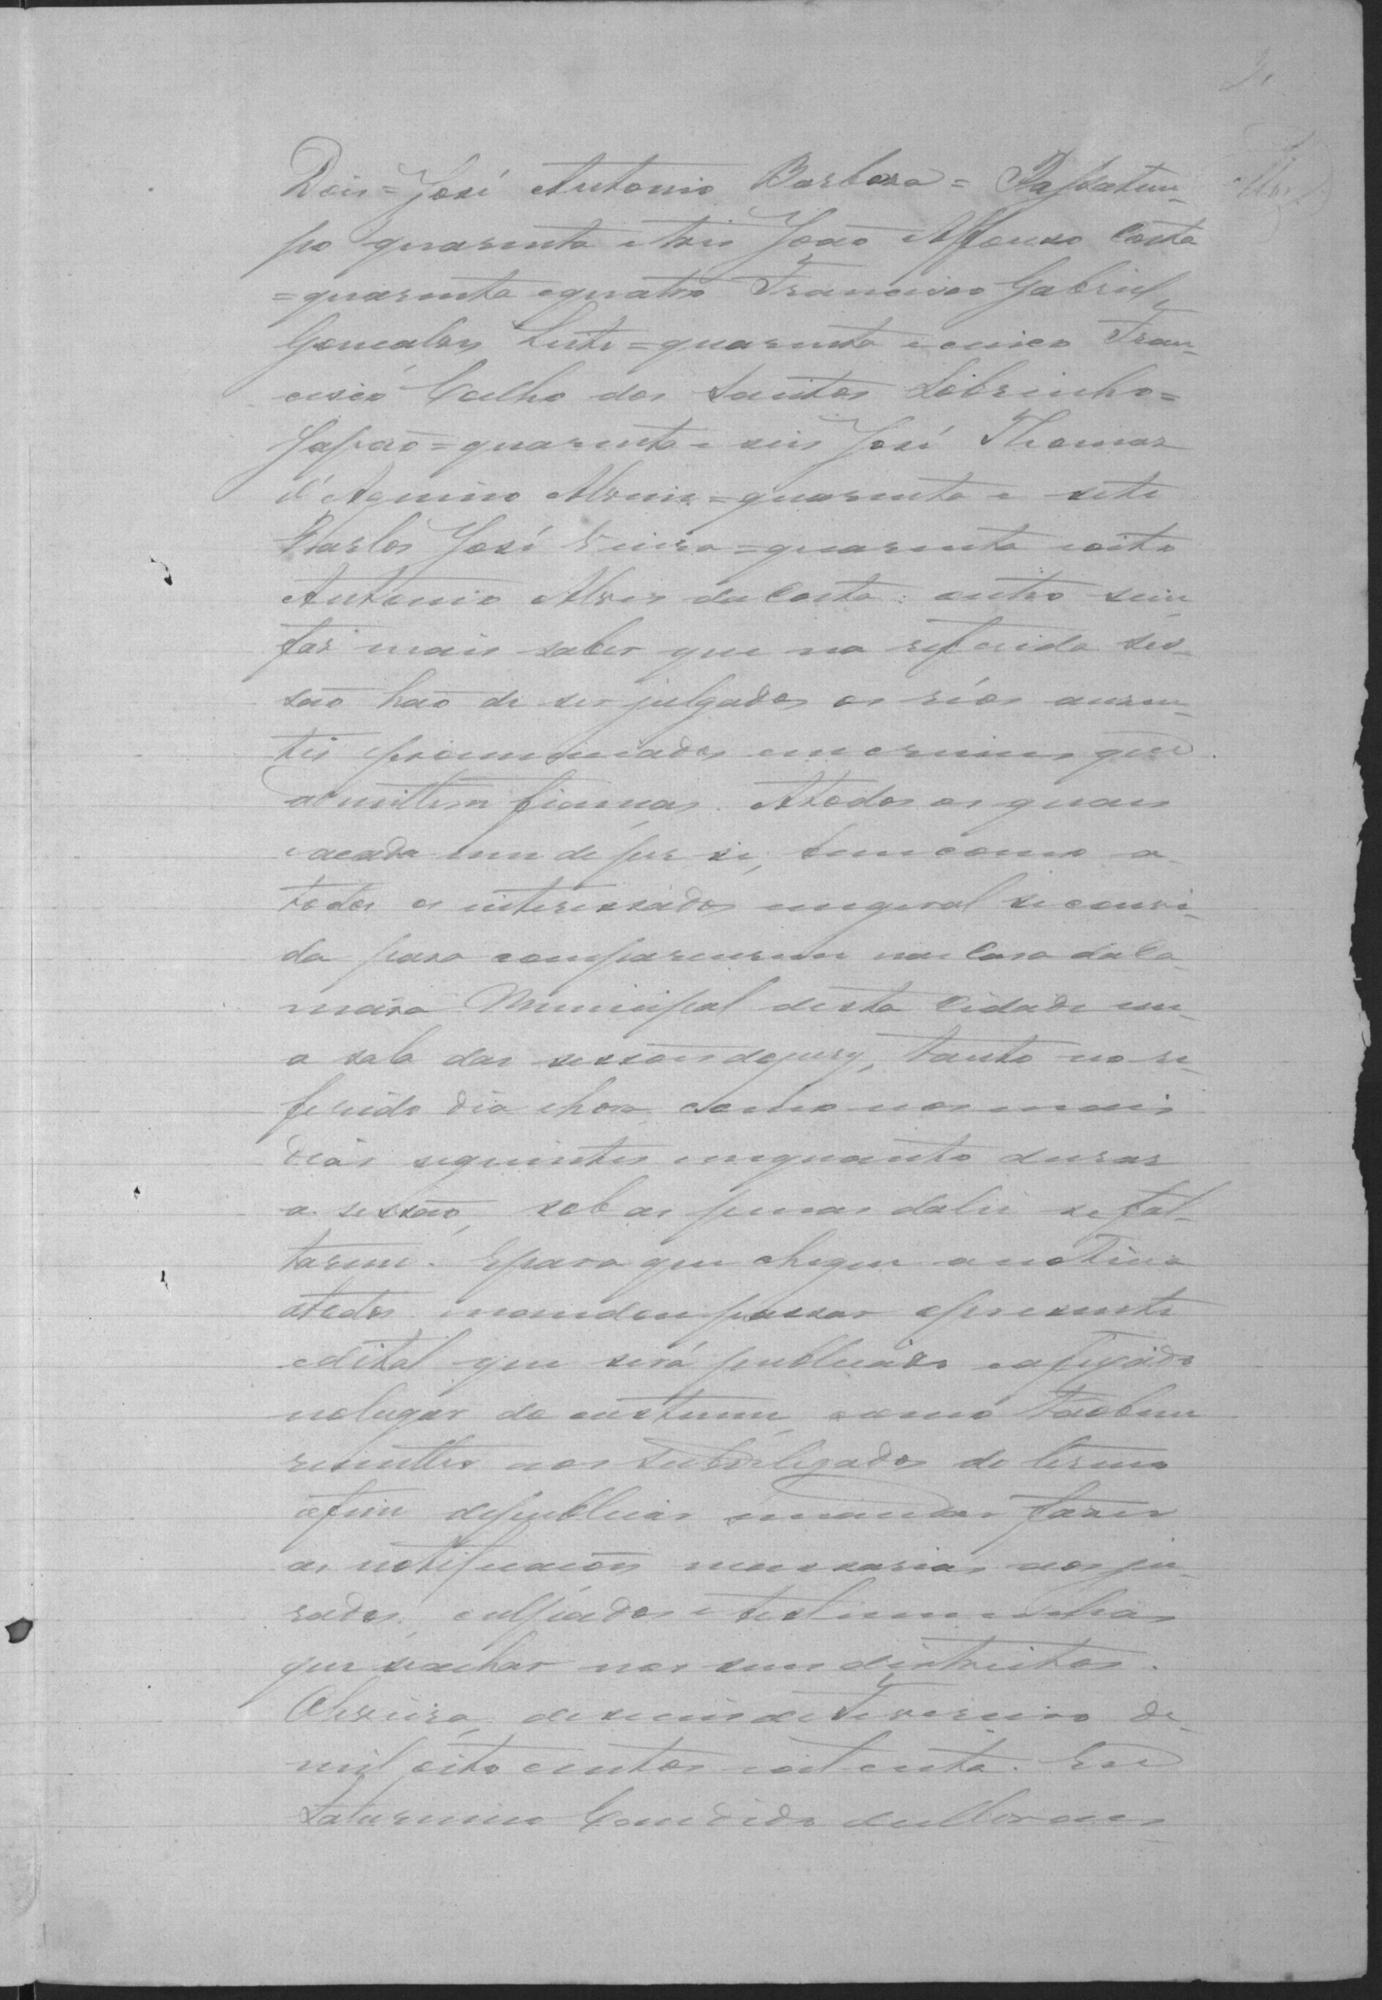 2.
Dois = José Antonio Barbosa = Passatem-
po quarenta e tres João Affonso Costa
= quarenta e quatro Francisco Gabriel
Goncalves Leite = quarenta e cinco Fran-
cisco Coelho dos Santos Sobrinho =
Japão = quarenta e seis José Thomas
d'Aquino Alves = quarenta e sete
Carlos José Vieira = quarenta e oito
Antonio Alves da Costa: outro sim
faz mais saber que na referida ses-
são hão de ser julgados os réos ausen-
tes pronunciados em crimes que
admittem fiancas. A todos os quaes
e a cada um de per si, bem como a
todos os interessados em geral se convi-
da para comparecerem na Casa da Ca-
mara Municipal desta Cidade em
a sala das sessões do jury, tanto no re-
ferido dia e hora como nos mais
dias seguintes emquanto durar
a sessão, sob as penas da lei se fal-
tarem. E para que chegue a noticia
a todos mandou passar o presente
edital que será publicado e afixado
no lugar do custume, como tãobem
remetter aos Subdelegados do termo
afim de publicar e mandar fazer
as notificacões necessarias aos ju-
rados, culpados e testimunhas
que se achar nos seus districtos.
Oliveira, de Fevereiro de
mil oito centos e oitenta. Eu
Saturnino Candido de Moraes